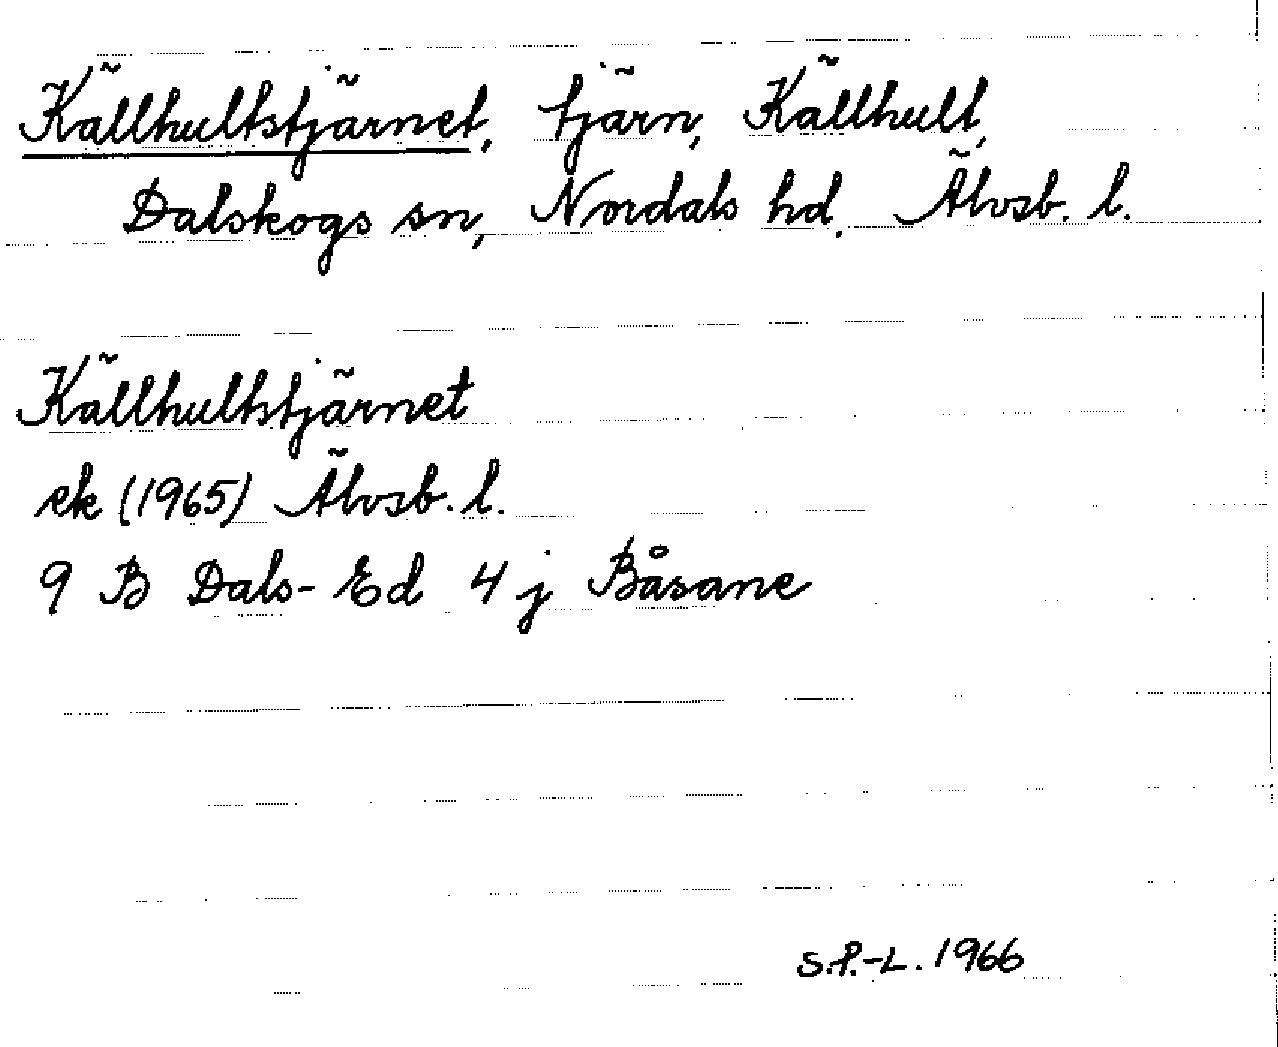 Källhultstjärnet, tjärn, Källhult,
Dalskogs sn, Nordals hd. Älvsb. l.
Källhultstjärnet
ek (1965) Älvsb. l.
9 B Dals-Ed 4 j Båsane
S.P.-L. 1966